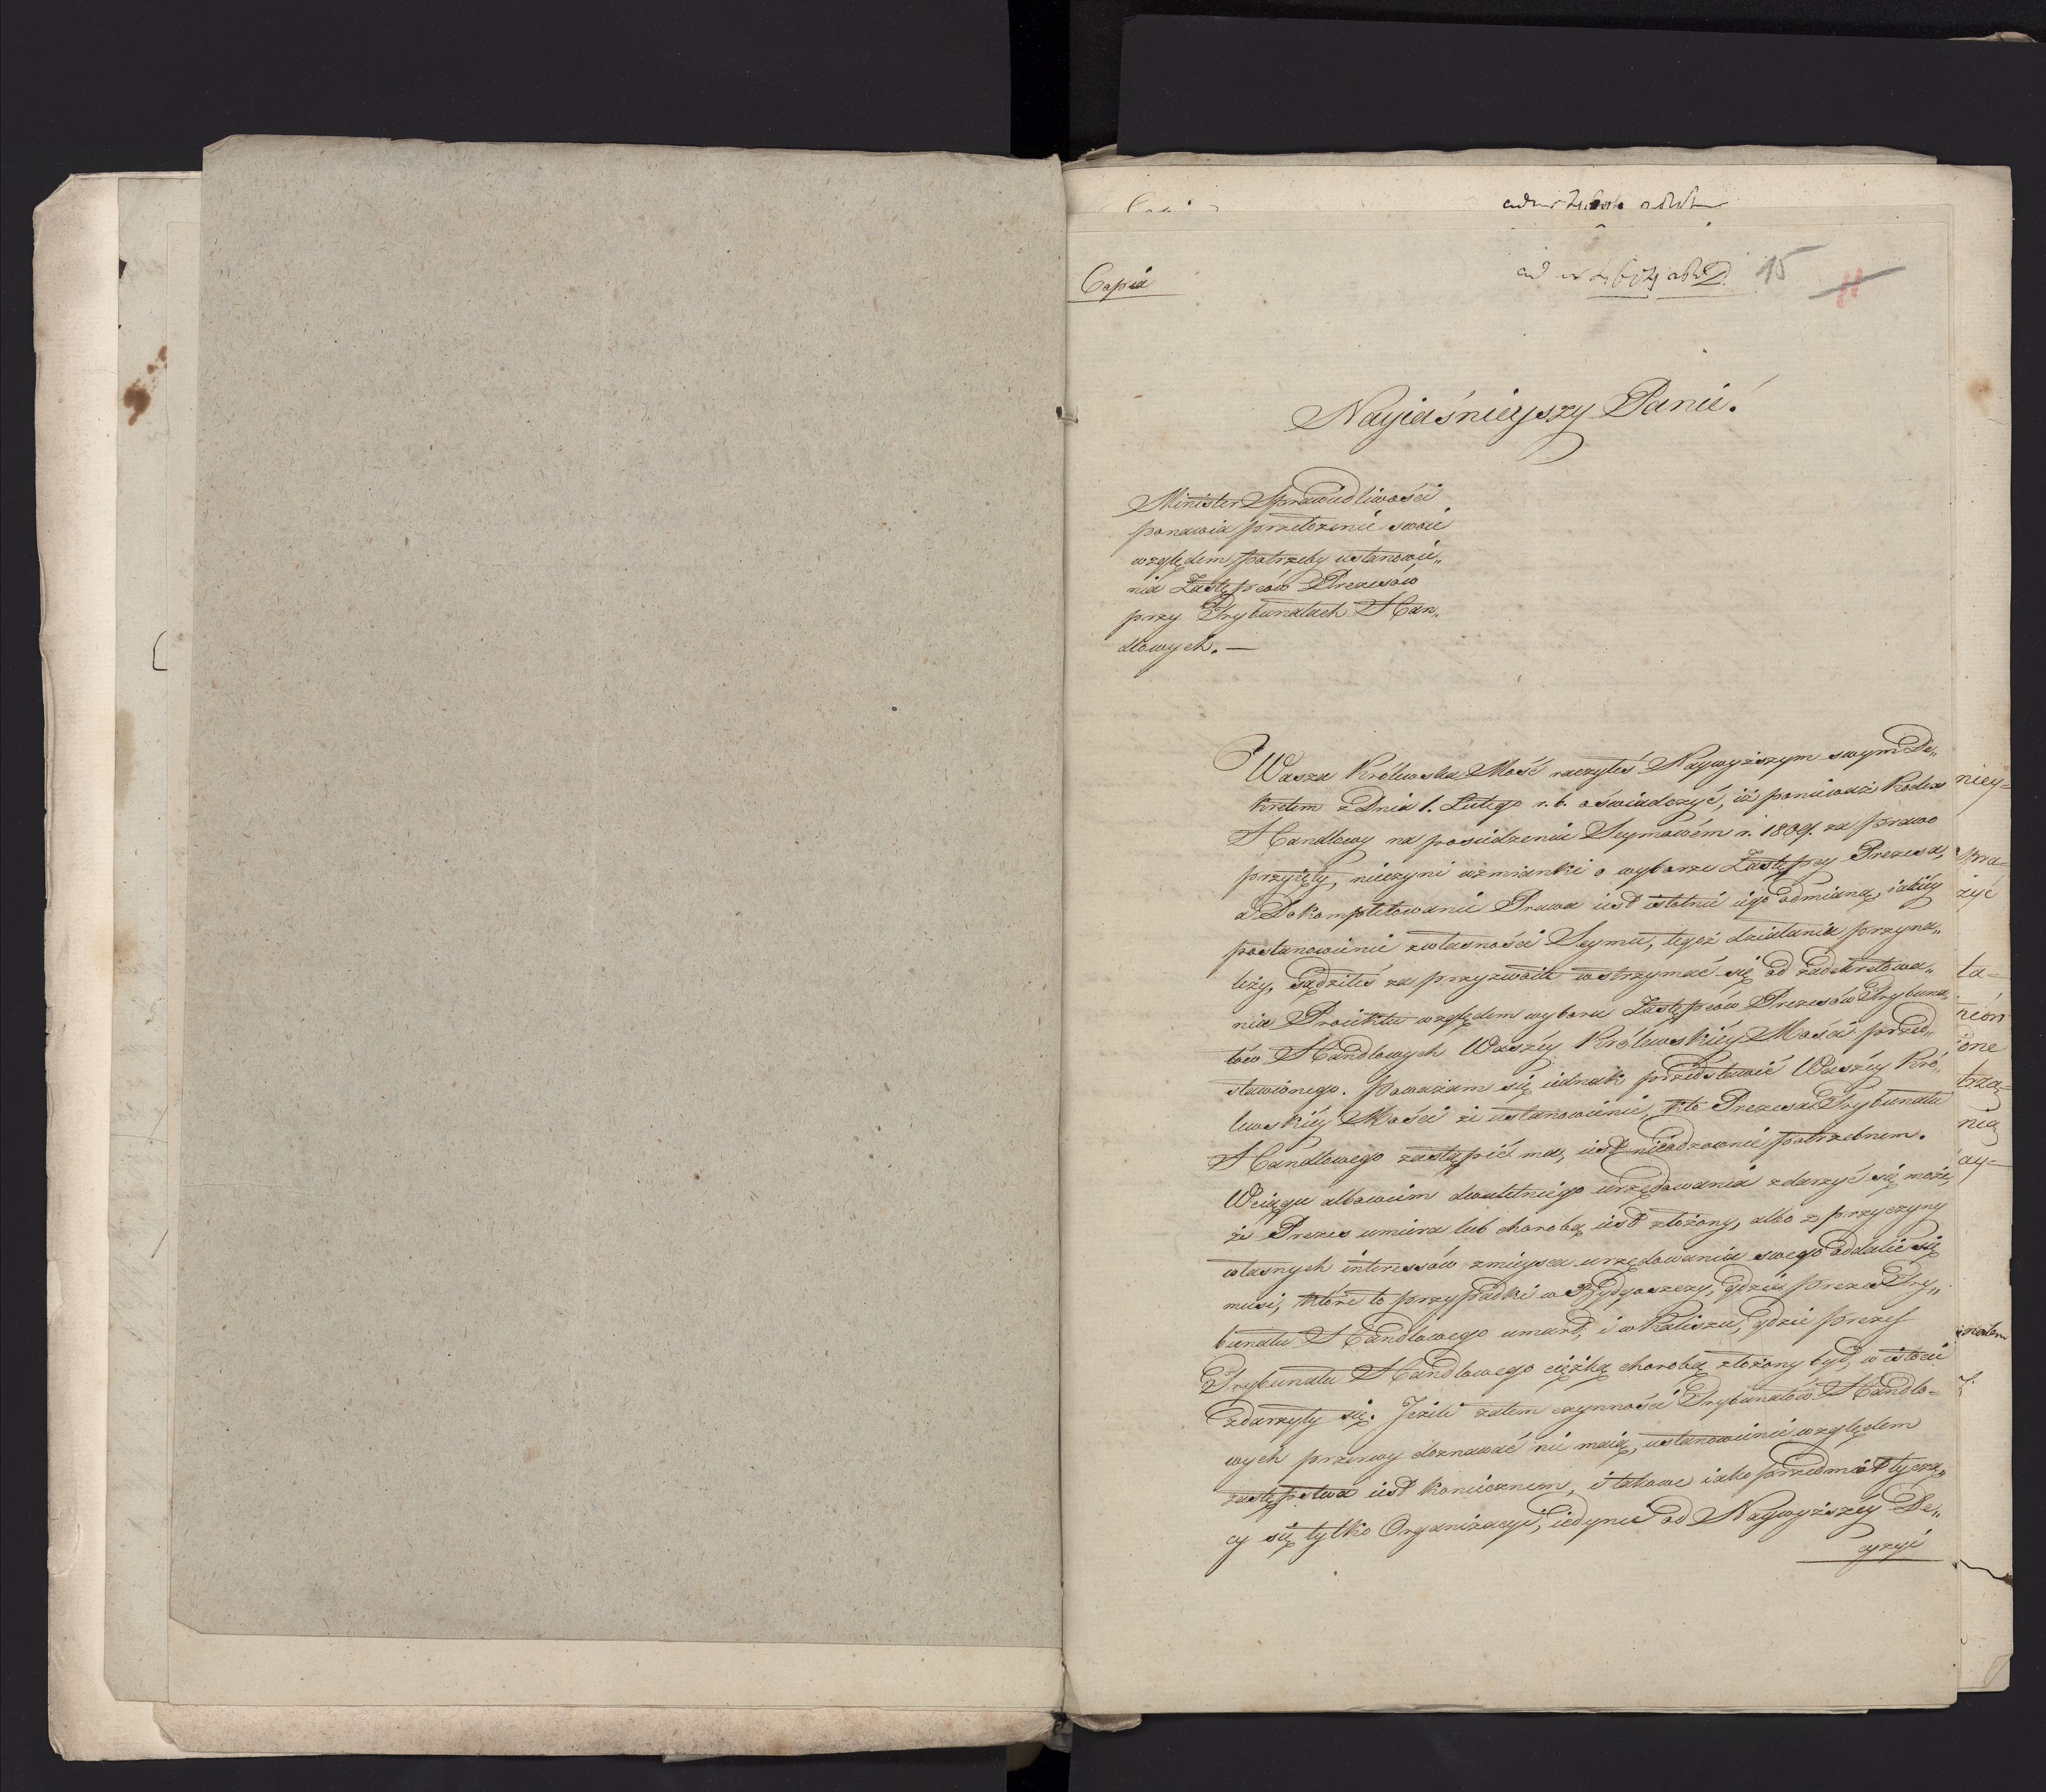 Copia
15
11
Nayiaśnieyszy Panie!
Minister Sprawiedliwości
ponawia przełożenie swoie
względem potrzeby ustanowie„
nia Zastępców Prezesów
przy Trybunałach Han„
dlowych. —
Wasza Królewska Mość raczyłeś Naywyższym swym De„
kretem z Dnia 1. Lutego r. b. oświadczyć, iż ponieważ Kodex
Handlowy na posiedzeniu Seymowém r. 1809. za prawo
przyięty, nieczyni wzmianki o wyborze Zastępcy Prezesa,
a Dokompletowanie Prawa iest istotnie iego odmianą, iakiéy
postanowienie z własności Seymu, tegoż działania przyna„
leży, sądziłeś za przyzwoite wstrzymać się od zadekretowa„
nia Proiektu względem wyboru Zastępców Prezesów Trybuna„
łów Handlowych Waszéy Królewskiéy Mości przed„
stawionego. Poważam się iednak przedstawić Waszéy Kró„
lewskiéy Mości że ustanowienie, kto Prezesa Trybunału
Handlowego zastąpić ma, iest nieodzownie potrzebnem.
W ciągu albowiem dwuletniego urzędowania zdarzyć się może,
że Prezes umiera lub chorobą iest złożony, albo z przyczyny
własnych interessów z mieysca urzędowania swego oddalić się
musi, które to przypadki w Bydgoszczy, gdzie prezes Try„
bunału Handlowego umarł, i w Kaliszu, gdzie prezes
Trybunału Handlowego ciężką chorobą złożony był, w istocie
zdarzyły się. Jeżeli zatem czynności Trybunałów Handlo=
wych przerwy doznawać nie maią, ustanowienie względem
zastępstwa iest koniecznem, i takowe iako przedmiot tyczą„
cy się tylko Organizacyi, iedynie od Naywyższéy De„
cyzyi
niey=
żyć
ta=
ione
trzą=
nią
ay=